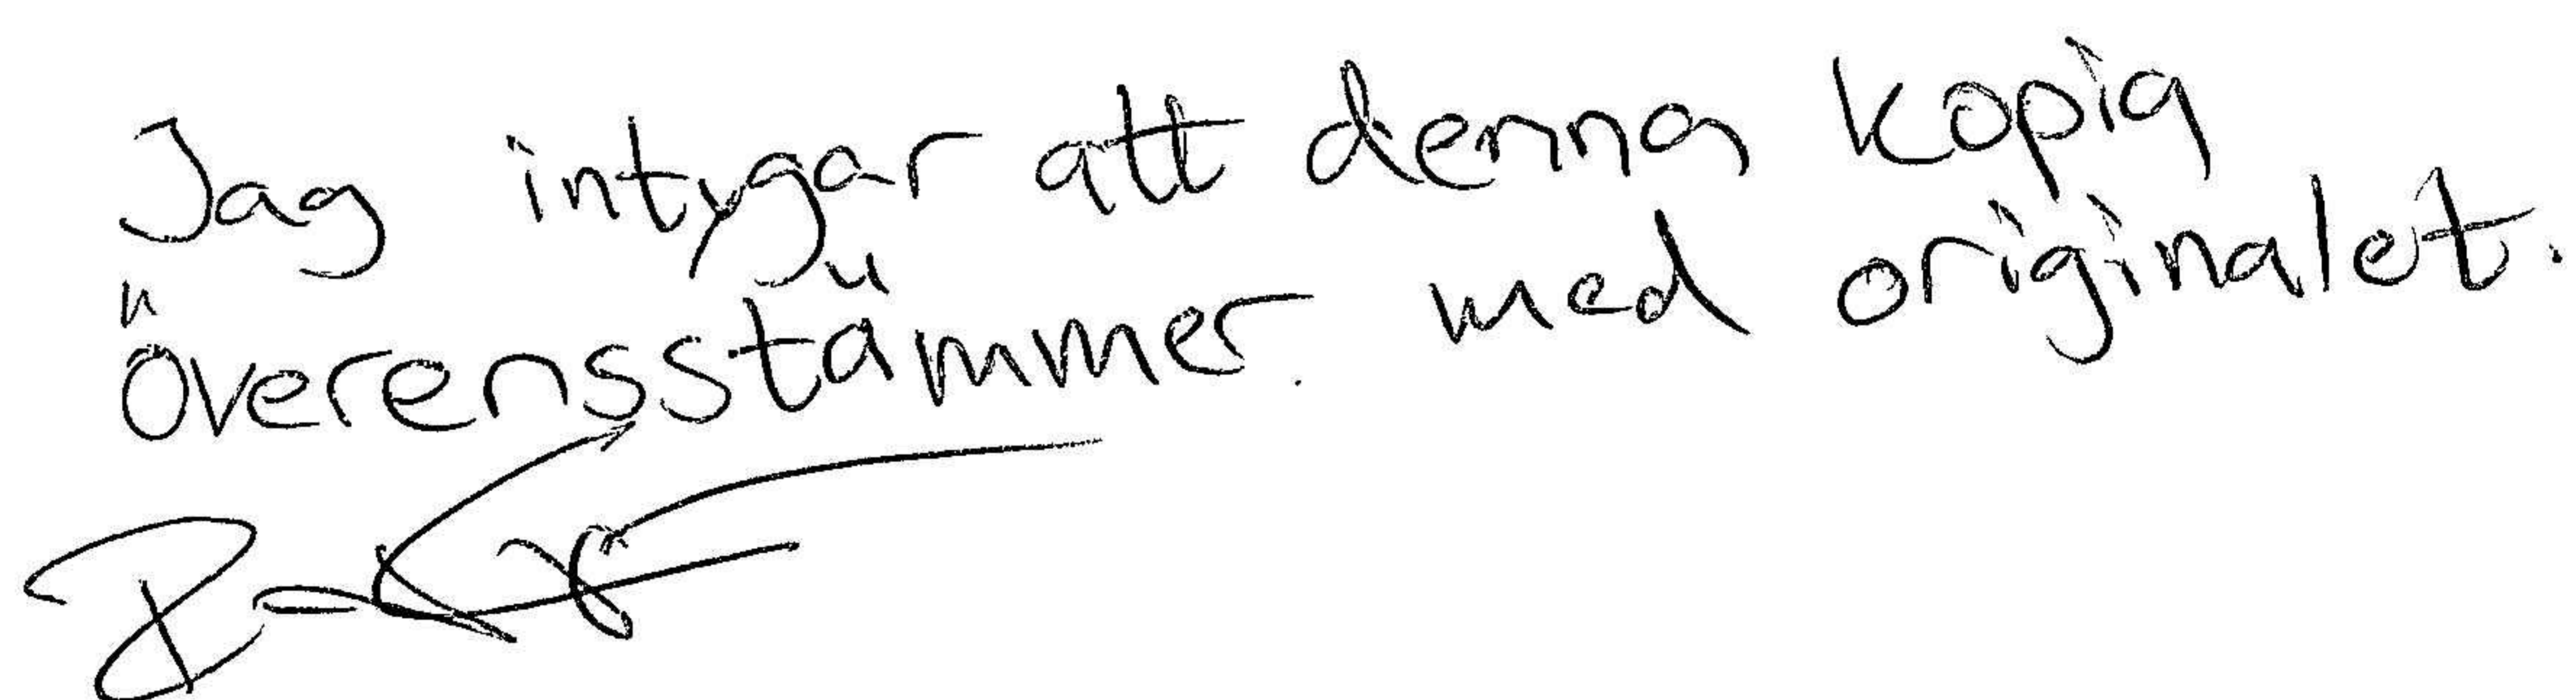 Jag intygar att denna kopia
överensstämmer med originalet.